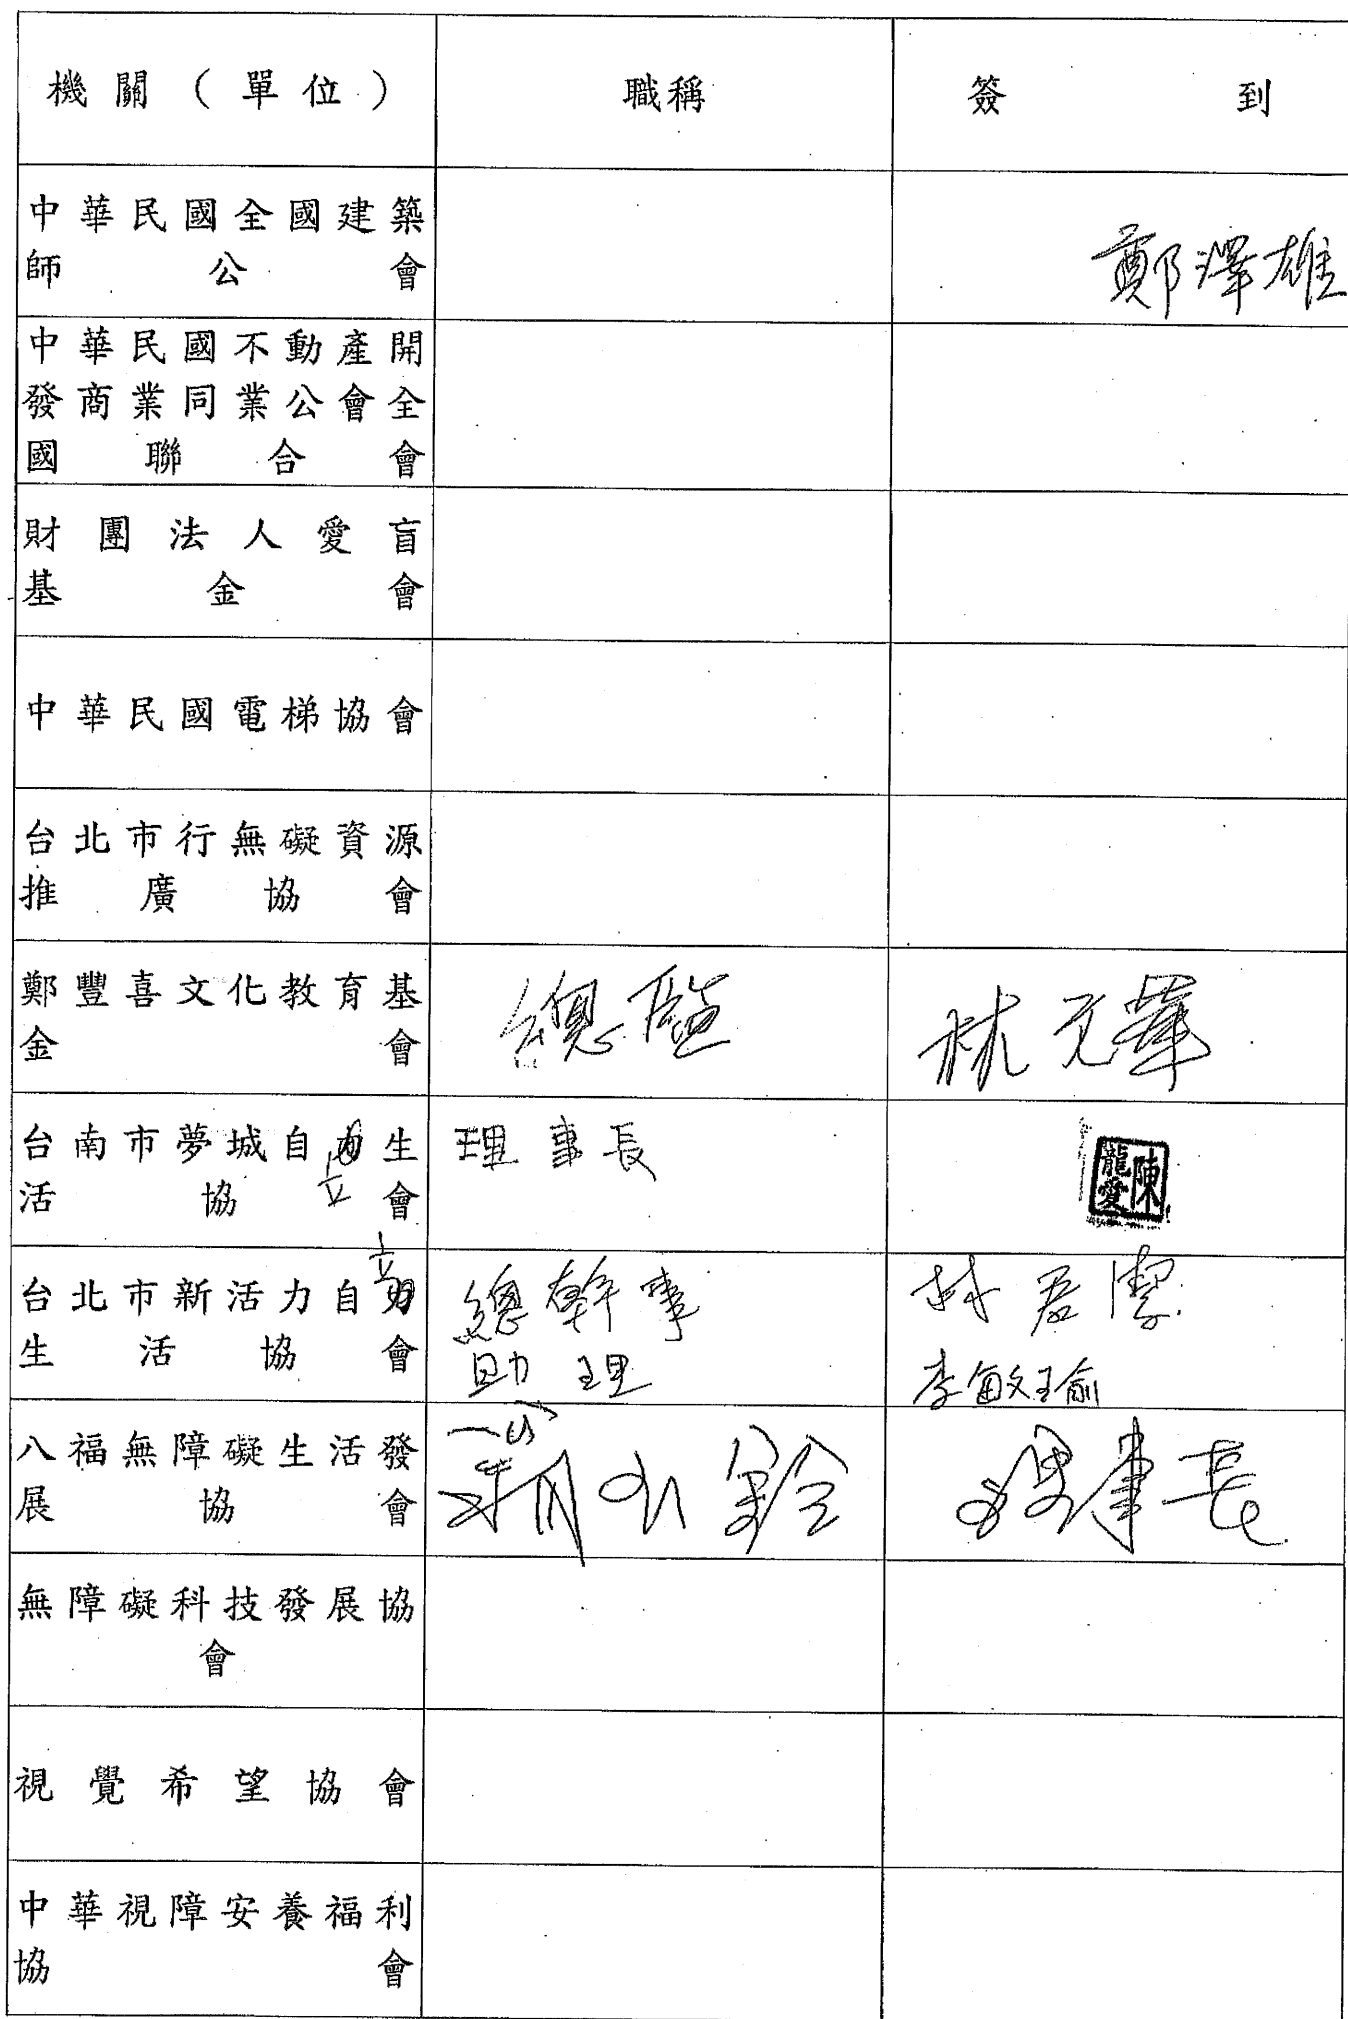 機關（單位） 職稱 簽到
中華民國全國建築
師公會 鄭澤雄
中華民國不動產開
發商業同業公會全
國聯合會
財團法人愛盲
基金會
中華民國電梯協會
台北市行無礙資源
推廣協會
鄭豐喜文化教育基
金會 總監
台南市夢城自立生 理事長
活協會 陳龍愛
台北市新活力自立 總幹事 林君潔
生活協會 助理 李敏瑜
八福無障礙生活發
展協會
無障礙科技發展協
會
視覺希望協會
中華視障安養福利
協會